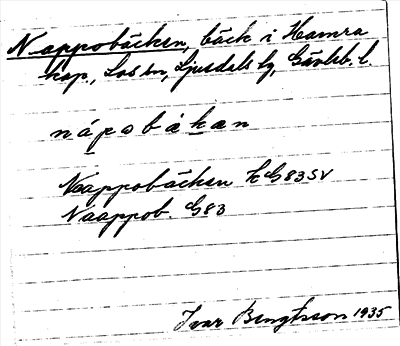 Nappobäcken, bäck i Hamra
kap., Los sn, Ljusdals tg, Gävleb. l.
nápobäkan
Nappobäcken KG83SV
Nåappob. G83
Ivar Bengtsson 1935